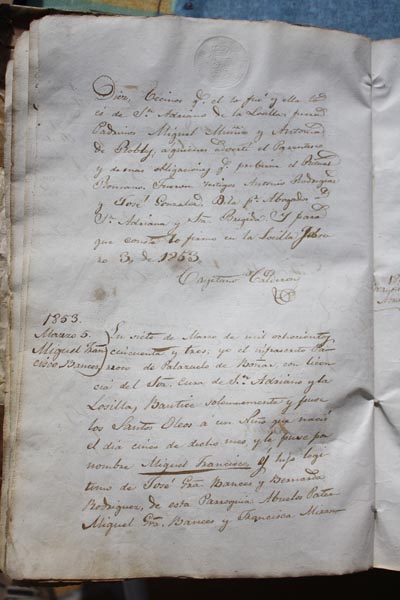 Diez, Vecinos qe. el lo fué y ella la
cio de Sn. Adriano de la Losilla, fueron
Padrinos Miguel Muñiz y Antonia
de Robles, a quienes advertí el Parentesco
y demas obligaciones qe. previene el Ritual
Romano. Fueron testigos Antonio Rodriguez
y José Gonzalez
Sn. Adriano y Sta. Brigida. Y para
que conste lo firmo en la Losilla Febre
ro 3, de 1853.
Cayetano Calderon
1853.
Marzo 5.
Miguel Fran
cisco Bances
En siete de Marzo de mil ochocientos
cincuenta y tres, yo el infraescrito Pa
rroco de Palazuelo de Boñar con licen
cia del Sor. Cura de Sn. Adriano y la
Losilla, Bautice solemnemente y puse
los Santos Oleos a un Niño que nació
el dia cinco de dicho mes y le puse por
nombre Miguel Francisco es hijo legi
timo de José Gra. Bances y Bernarda
Rodriguez, de esta Parroquia Abuelos Pater
Miguel Gra. Bances y Francisca